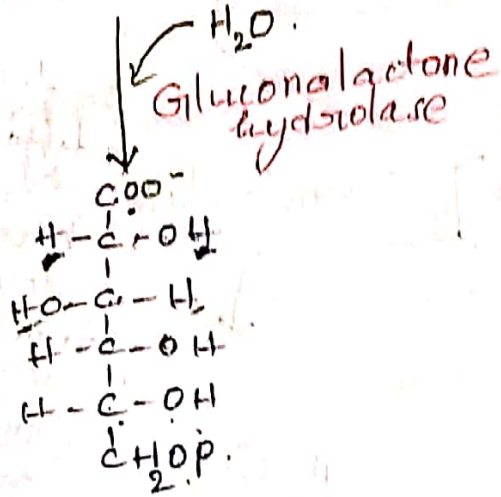 H₂O.
Gluconalactone
hydrolase
COO⁻
H-C-OH
HO-C-H
H-C-OH
H-C-OH
CH₂OP.